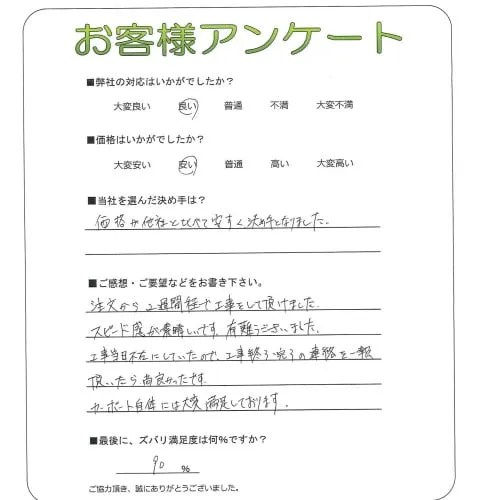 お客様アンケート
■弊社の対応はいかがでしたか？
大変良い 良い 普通 不満 大変不満
■価格はいかがでしたか？
大変安い 安い 普通 高い 大変高い
■当社を選んだ決め手は？
価格が他社と比べて安すく決め手となりました.
■ご感想・ご要望などをお書き下さい。
注文から2週間程で工事をして頂けました.
スピード感が素晴しいです. 有難うございました.
工事当日不在にしていたので、工事終了完了の連絡を一報
頂いたら尚良かったです.
カーポート自体には大変満足しております.
■最後に、ズバリ満足度は何%ですか？
90 %
ご協力頂き、誠にありがとうございました。